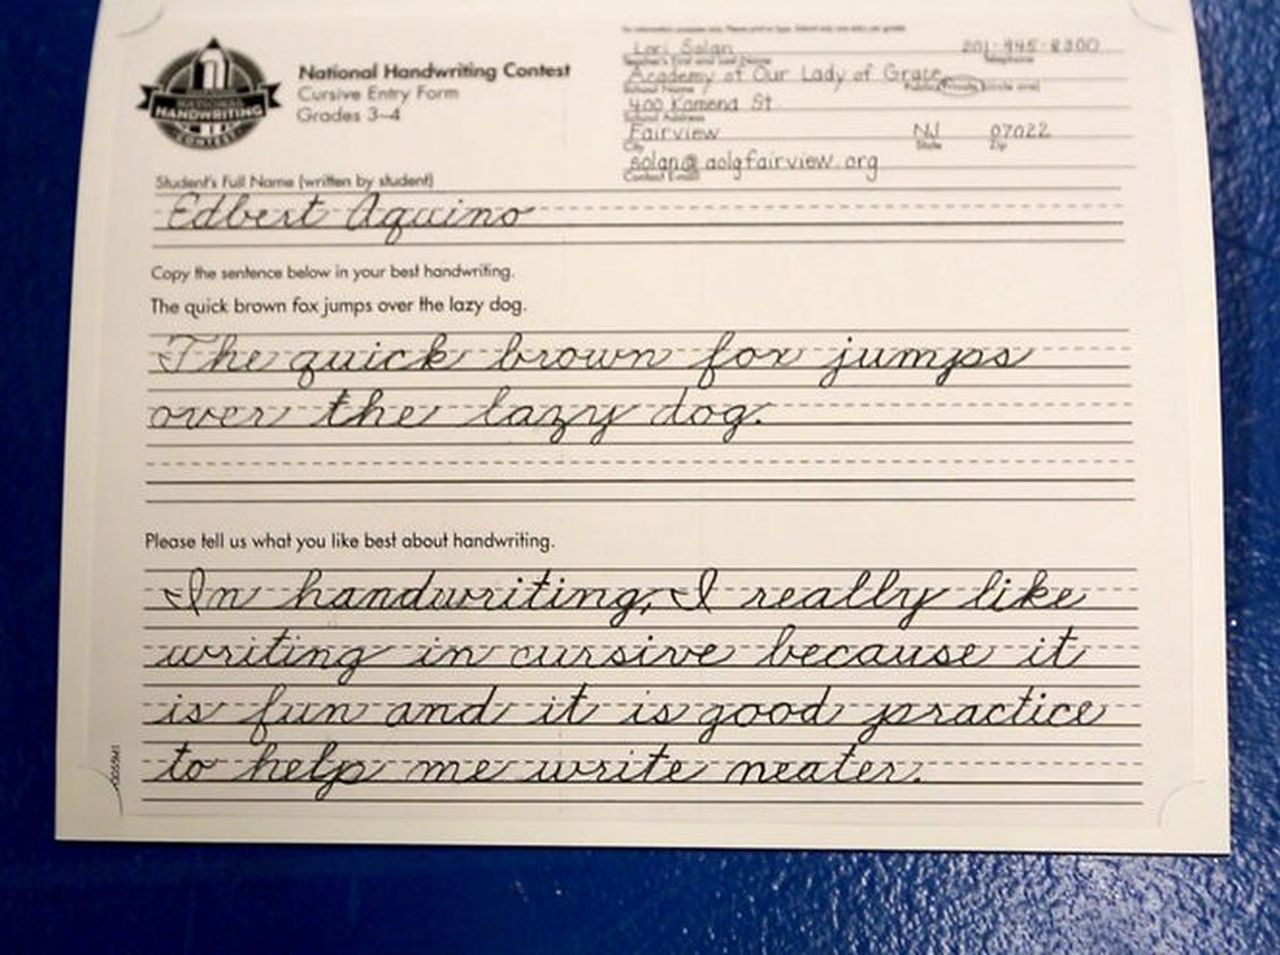 National Handwriting Contest
Cursive Entry Form
Grades 3–4
NATIONAL
HANDWRITING
CONTEST
Lori Solan 201-945-8300
Teacher's First and Last Name Telephone
Academy of Our Lady of Grace
School Name Public/Private (circle one)
400 Kamena St
School Address
Fairview NJ 07022
City State Zip
solan@aolgfairview.org
Contact Email
Student's Full Name (written by student)
Edbert Aquino
Copy the sentence below in your best handwriting.
The quick brown fox jumps over the lazy dog.
The quick brown fox jumps
over the lazy dog.
Please tell us what you like best about handwriting.
In handwriting, I really like
writing in cursive because it
is fun and it is good practice
to help me write neater.